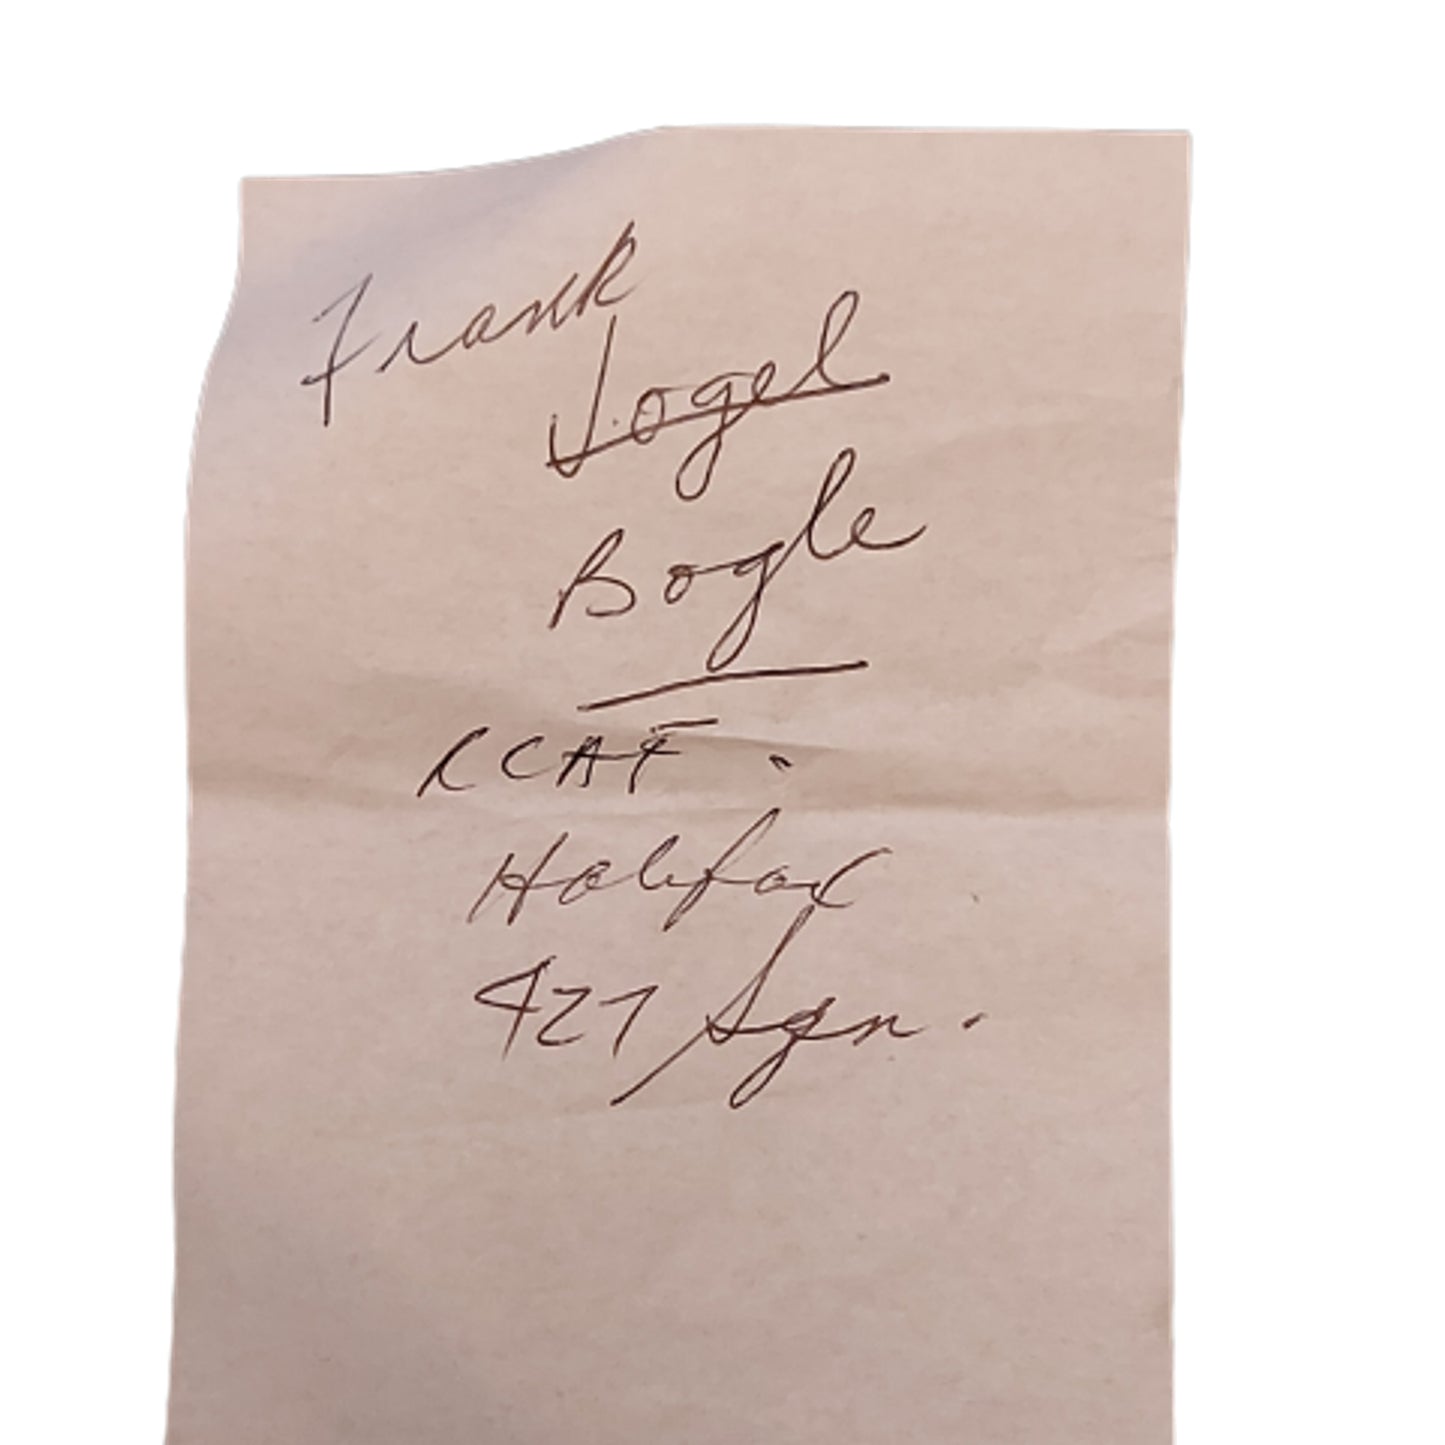 Frank
Vogel
Bogle
RCAF.
Halifax
427 Sqn.